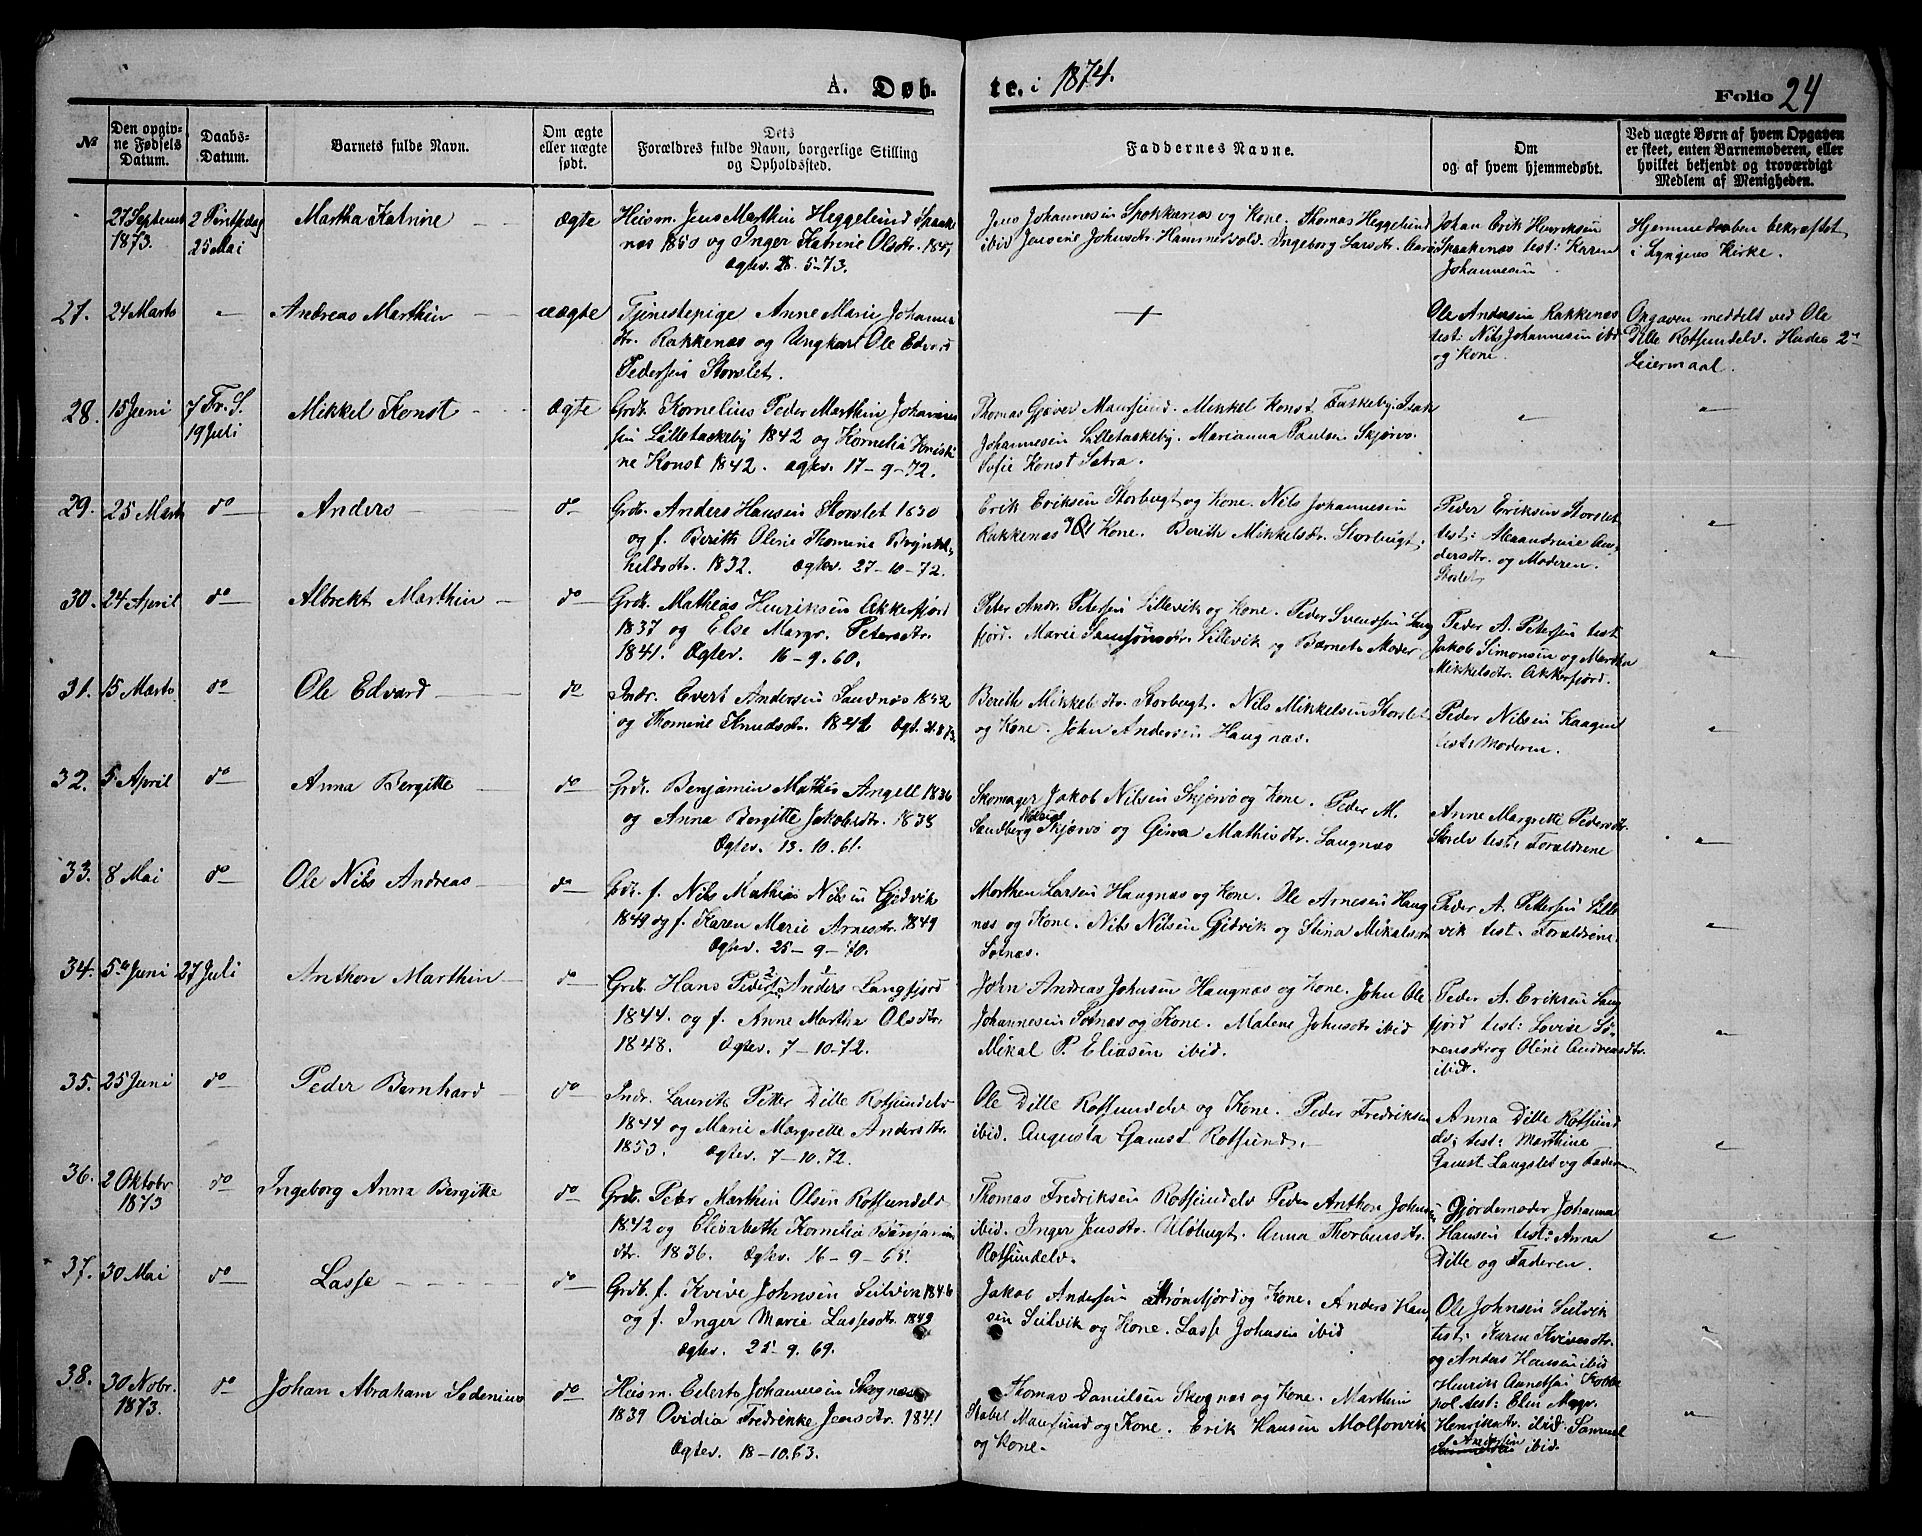 A. Døb-
te. i 1874.
Folio 24
№
Den opgiv-
ne Fødsels
Datum.
Daabs-
Datum.
Barnets fulde Navn.
Om ægte
eller uægte
født.
Dets
Forældres fulde Navn, borgerlige Stilling
og Opholdssted.
Faddernes Navne.
Om
og af hvem hjemmedøbt.
Ved uægte Børn af hvem Opgaven
er skeet, enten Barnemoderen, eller
hvilket bekjendt og troværdigt
Medlem af Menigheden.
27 Septemb
1873.
2 Pintsedag
25 Mai
Martha Katrine
ægte
Huusm. Jens Marthin Heggelund Spaake
næs 1850 og Inger Katrine Olsdtr. 1847
Ægtev. 28. 5-73.
Jens Johannesen Spokkenæs og Kone. Thomas Heggelund
ibid Jensine Johnsdtr. Hammervold. Ingeborg Larsdtr.
Johan Erik Henriksen
Spaakenæs test: Karen
Johannesen
Hjemmedaaben bekræftet
i Lyngens Kirke.
27.
24 Marts
"
Andreas Marthin
uægte
Tjenestepige Anne Marie Johannes
dtr. Rakkenæs og Ungkarl Ole Edvard
Pedersen Storslet.
+
Ole Andersen Rakkenæs
test: Nils Johannesen ibd
og Kone.
Opgaven meddelt ved Ole
Dille Rotsundelv. Hendes 2det
Leiermaal.
28.
15 Juni
7 Fr. S.
19 Juli
Mikkel Konst
Ægte
Grdb. Kornelius Peder Marthin Johannes
sen Lilletaskeby 1842 og Kornelia Kristi
ne Konst 1842. Ægtev. 17-9-72.
Thomas Gjæver Maursund. Mikkel Konst Taskeby. Isak
Johannesen Lilletaskeby. Marianna Paulsen Skjervø.
Sofie Konst Satra.
"
"
29.
25 Marts
do
Anders
do
Grdb. Anders Hansen Storslet 1830
og f. Berith Oline Thomine Brynhil-
hildsdtr. 1832. Ægtev. 27-10-72.
Erik Eriksen Storbugt og Kone. Nils Johannesen
Rakkenæs og Kone. Berith Mikkelsdtr. Storbugt.
Peder Eriksen Storslet
test: Alexandrine An-
dersdtr. og Moderen.
Storslet
"
30.
24 April
do
Albrekt Marthin
do
Grdb. Mathias Henriksen Akkerfjord
1837 og Else Margr. Petersdtr.
1841. Ægtev. 16-9.60.
Peter Andr. Petersen Lillevik og Kone. Peder Svendsen Lang
fjord. Marie Samsonsdtr. Lillevik og Barnets Moder
Peder A. Petersen test
Jakob Simonsen og Martha
Mikkelsdtr. Akkerfjord.
"
31.
15 Marts
do
Ole Edvard
do
Indr. Evert Andersen Sandnæs 1852
og Thomine Knudsdtr. 1842 Ægt.
Berith Mikkelsdtr. Storbugt. Nils Mikkelsen Storslet
og Kone. John Andersen Haugnæs.
Peder Nilsen Kaagen
test: Moderen.
"
32.
5 April
do
Anna Bergitte
do
Grdr. Benjamin Mathis Angell 1836
og Anna Bergitte Jakobsdtr. 1838
Ægtev. 13.10.61.
Skomager Jakob Nilsen Skjervø og Kone. Peder M.
Sandberg Skjervø og Gina Mathisdtr. Laugnæs
Anne Margrethe Pedersdtr.
Storelv test: Forældrene
"
33.
8 Mai
do
Ole Nils Andreas
do
Grdr. f. Nils Mathias Nilsen Gjedvik
1849 og f. Karen Marie Arnesdtr. 1849
Ægtev. 25-9-70.
Morthen Larsen Haugnæs og Kone. Ole Arnesen Haug
næs og Kone. Nils Nilsen Gjedvik og Stina Mikalsdtr
Sotnæs.
Peder A. Pettersen Lille
vik test. Forældrene.
"
34.
5te Juni
27 Juli
Anthon Marthin
do
Grdb. Hans Peders. Anders Langfjord
1844. og f. Anne Martha Olsdtr.
1848. Ægtev. 7-10.72.
John Andreas Johnsen Haugnæs og Kone. John Ole
Johannesen Sotnæs og Kone. Malene Johnsdtr ibid
Mikal P. Eliasen ibid.
Peder A. Eriksen Lang
fjord test: Lovise Sø-
rensdtr og Oline Andreasdtr.
ibid.
"
35.
25 Juni
do
Peder Bernhard
do
Indr. Laurits Petter Dille Rotsundelv
1844 og Marie Margrethe Andersdtr.
1853. Ægtev. 7-10.72.
Ole Dille Rotsundelv og Kone. Peder Fredriksen
ibid. Augusta Gamst Rotsund.
Anna Dille Rotsund
elv; test: Marthine
Gamst Langslet og Faderen
"
36.
2 Oktobr
1873
do
Ingeborg Anna Bergitte
do
Grdb. Peter Marthin Olsen Rotsundelv
1842 og Elisabeth Kornelia Benjamin
dtr. 1836. Ægtev. 16-9-65.
Thomas Fredriksen Rotsundelv Peder Anthon Johnsen
ibid. Inger Jensdtr. Uløbugt. Anna Thorbensdtr.
Rotsundelv.
Gjordemoder Johanna
Hansen test: Anna
Dille og Faderen.
"
37.
30 Mai
do
Lasse
do
Grdb. f. Kvive Johnsen Seilvik 1846
og f. Inger Marie Lassesdtr. 1849
Ægtev. 25-9.69.
Jakob Andersen Strømfjord og Kone. Anders Han
sen Seilvik og Kone. Lasse Johnsen ibid
Ole Johnsen Seilvik
test: Karen Kvivesdtr.
og Anders Hansen ibid
"
38.
30 Nobr.
1873.
do
Johan Abraham Sedenius
do
Huusm. Eilert Johannesen Skognæs
1839 Ovidia Fredrikke Jensdtr. 1841
Ægtev. 18-10.63.
Thomas Danielsen Skognæs og Kone. Marthin
Stabel Maursund og Kone. Erik Hansen Molforvik
og Kone.
Henrik Arnetsen Kobbe
pol test: Elen Magr.
Henriksdtr. ibid. Samuel
Andersen ibid
"